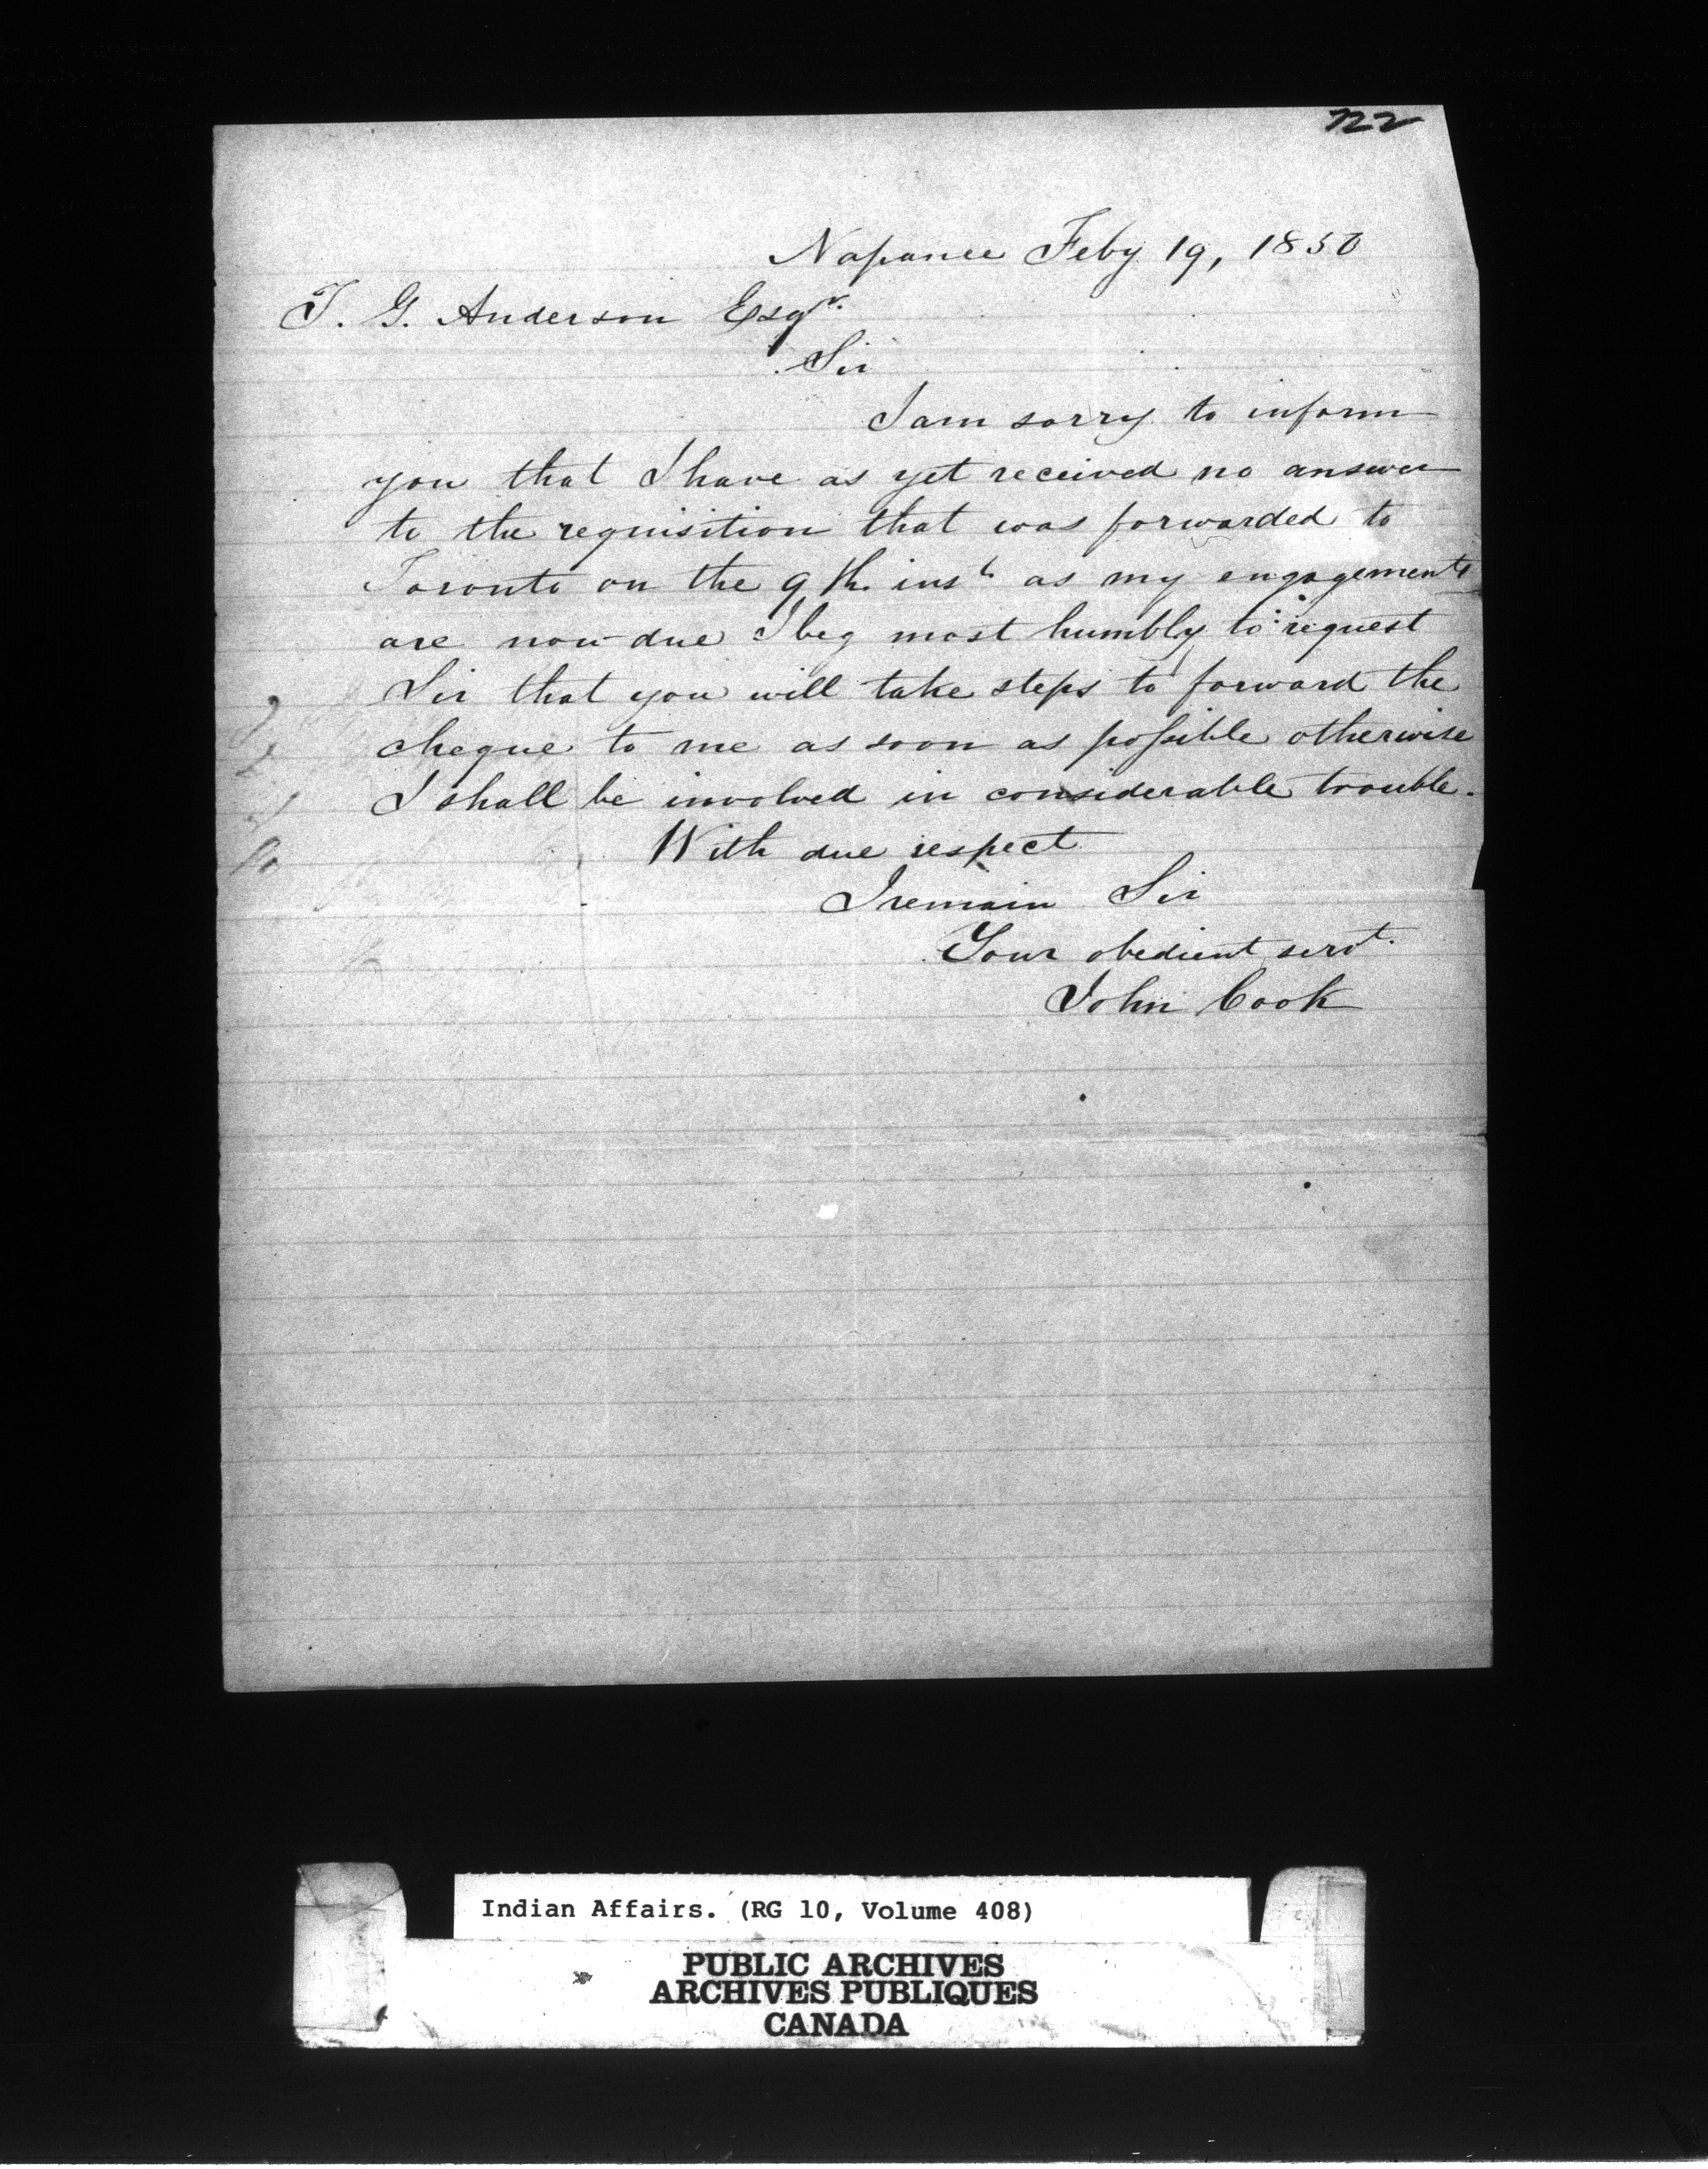 722
Napanee Feby 19, 1850
T. G. Anderson Esqr.
Sir
I am sorry to inform
you that I have as yet received no answer
to the requisition that was forwarded to
Toronto on the 9th. inst as my engagements
are now due I beg most humbly to request
Sir that you will take steps to forward the
cheque to me as soon as possible otherwise
I shall be involved in considerable trouble.
With due respect
I remain Sir
Your obedient servt.
John Cook
Indian Affairs. (RG 10, Volume 408)
PUBLIC ARCHIVES
ARCHIVES PUBLIQUES
CANADA